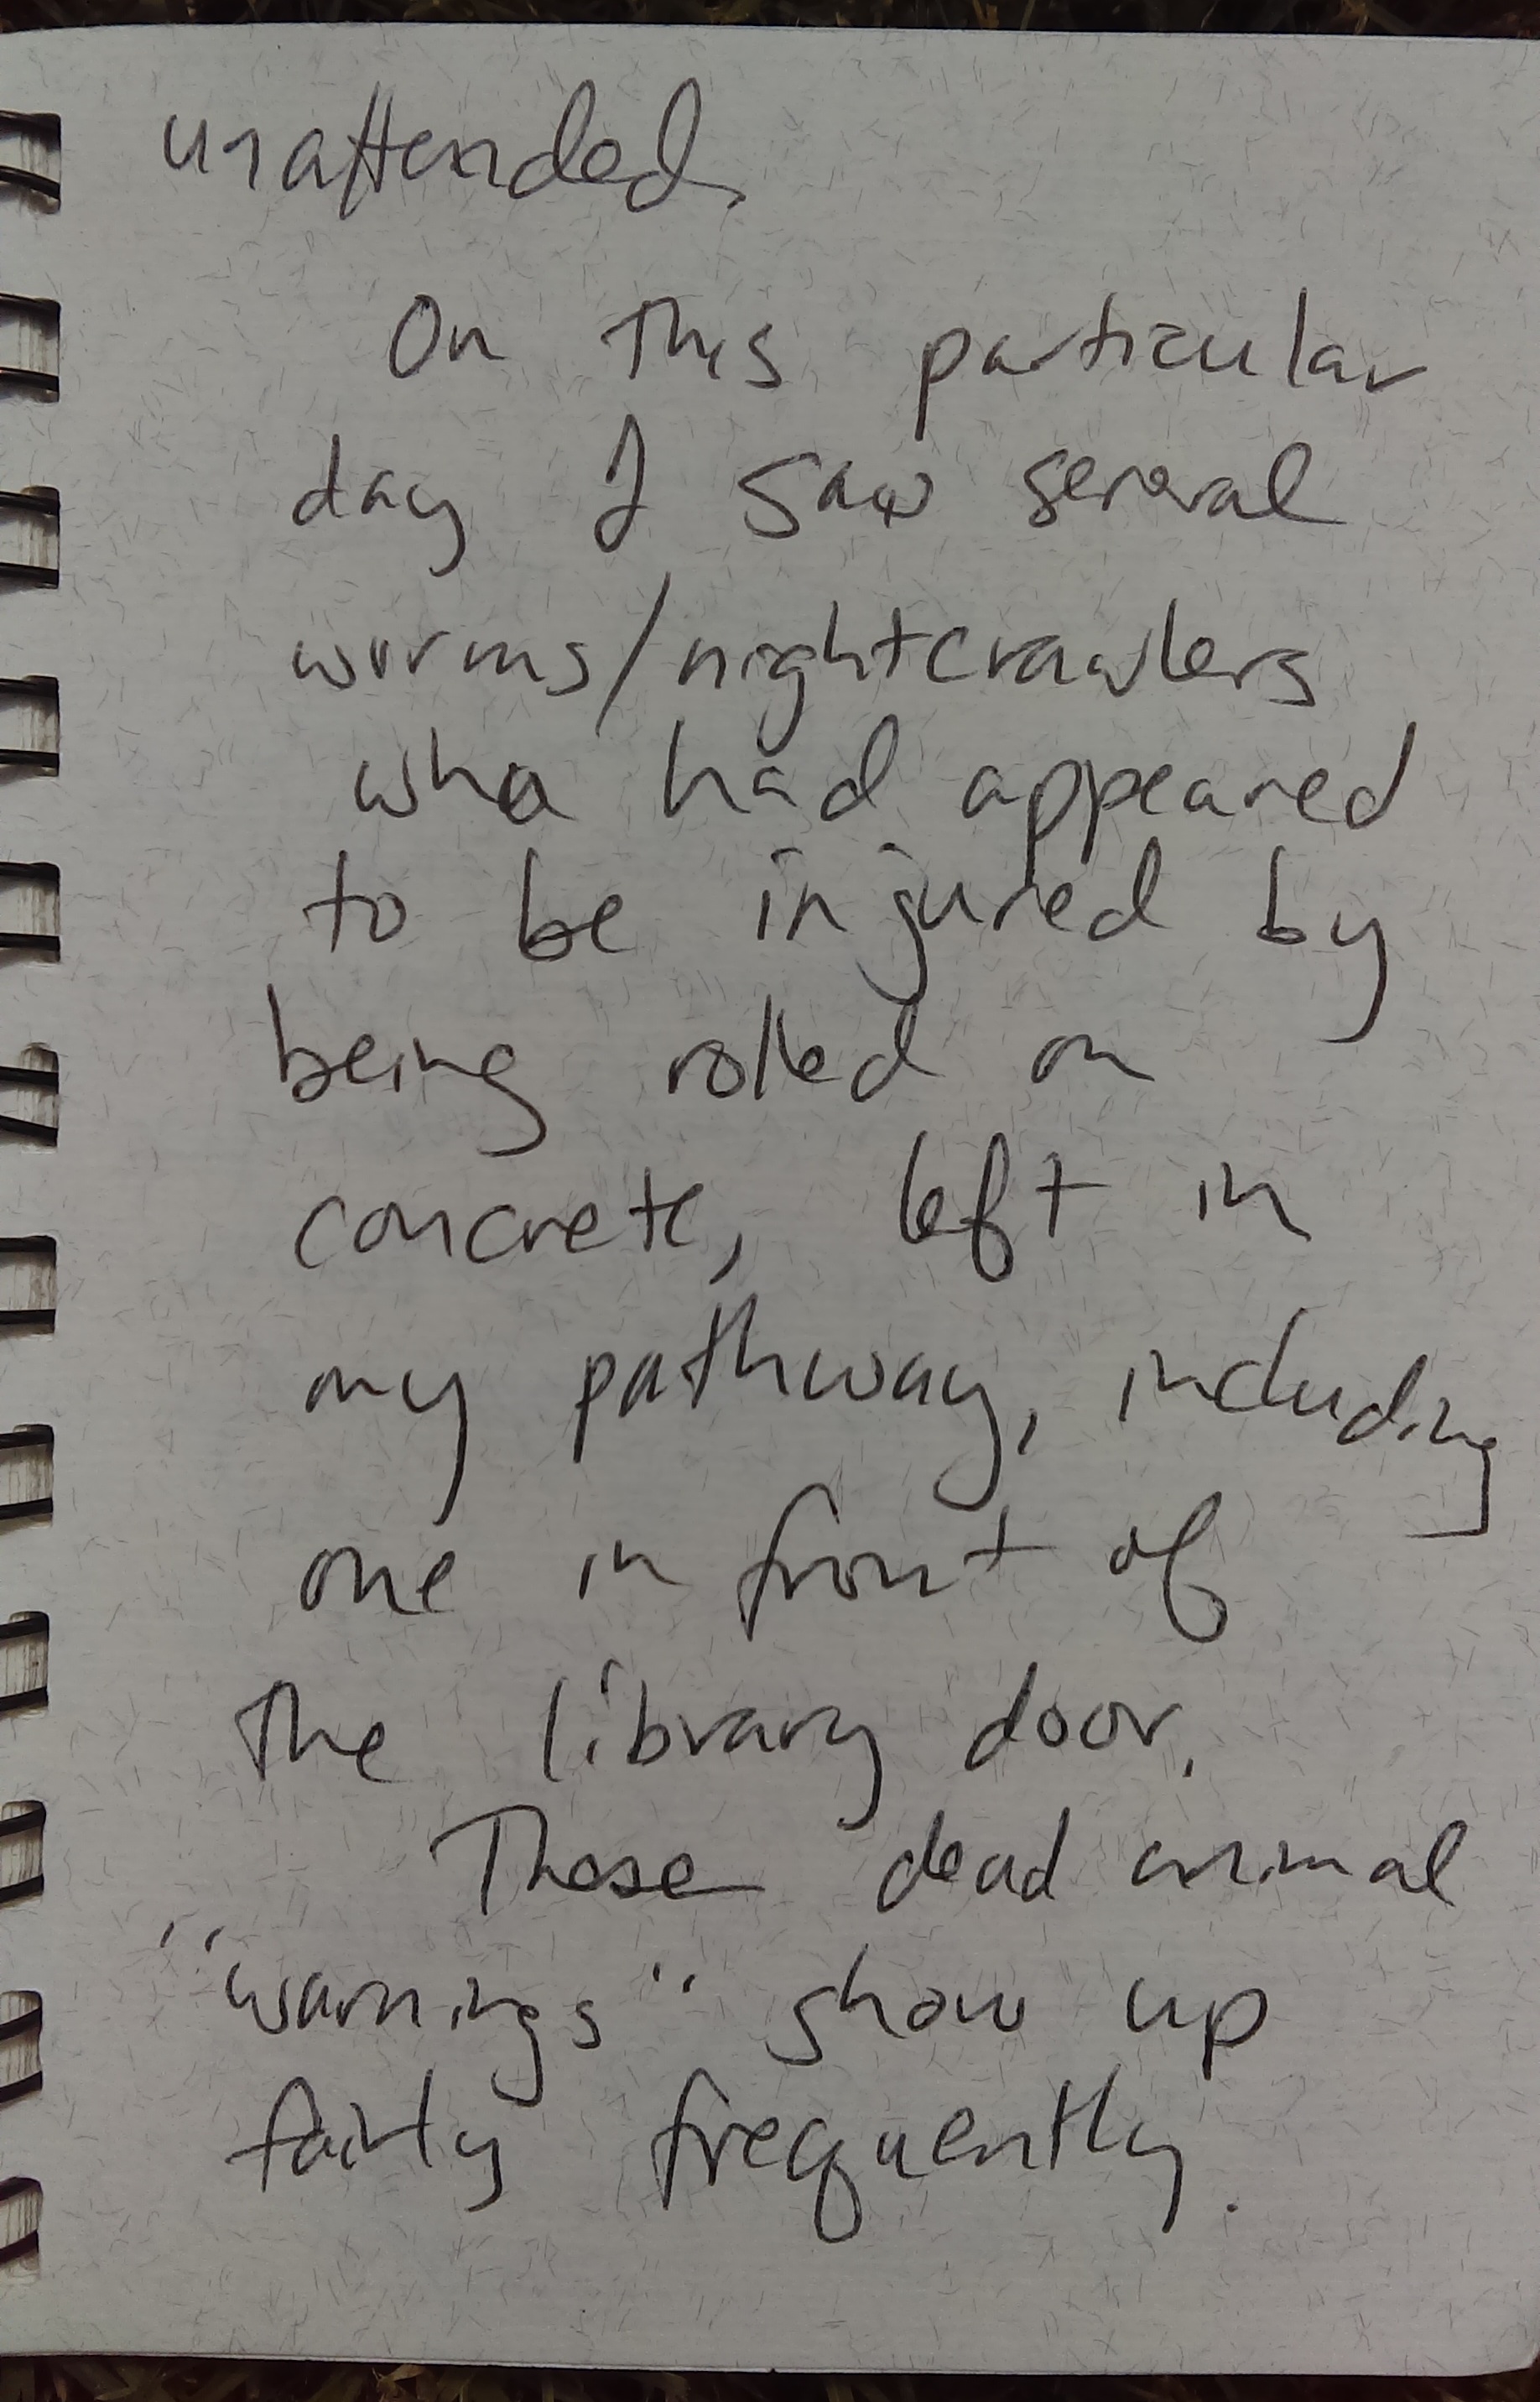 unattended.
On this particular
day I saw several
worms/nightcrawlers
who had appeared
to be injured by
being rolled on
concrete, left in
my pathway, including
one in front of
the library door.
These dead animal
"warnings" show up
fairly frequently.